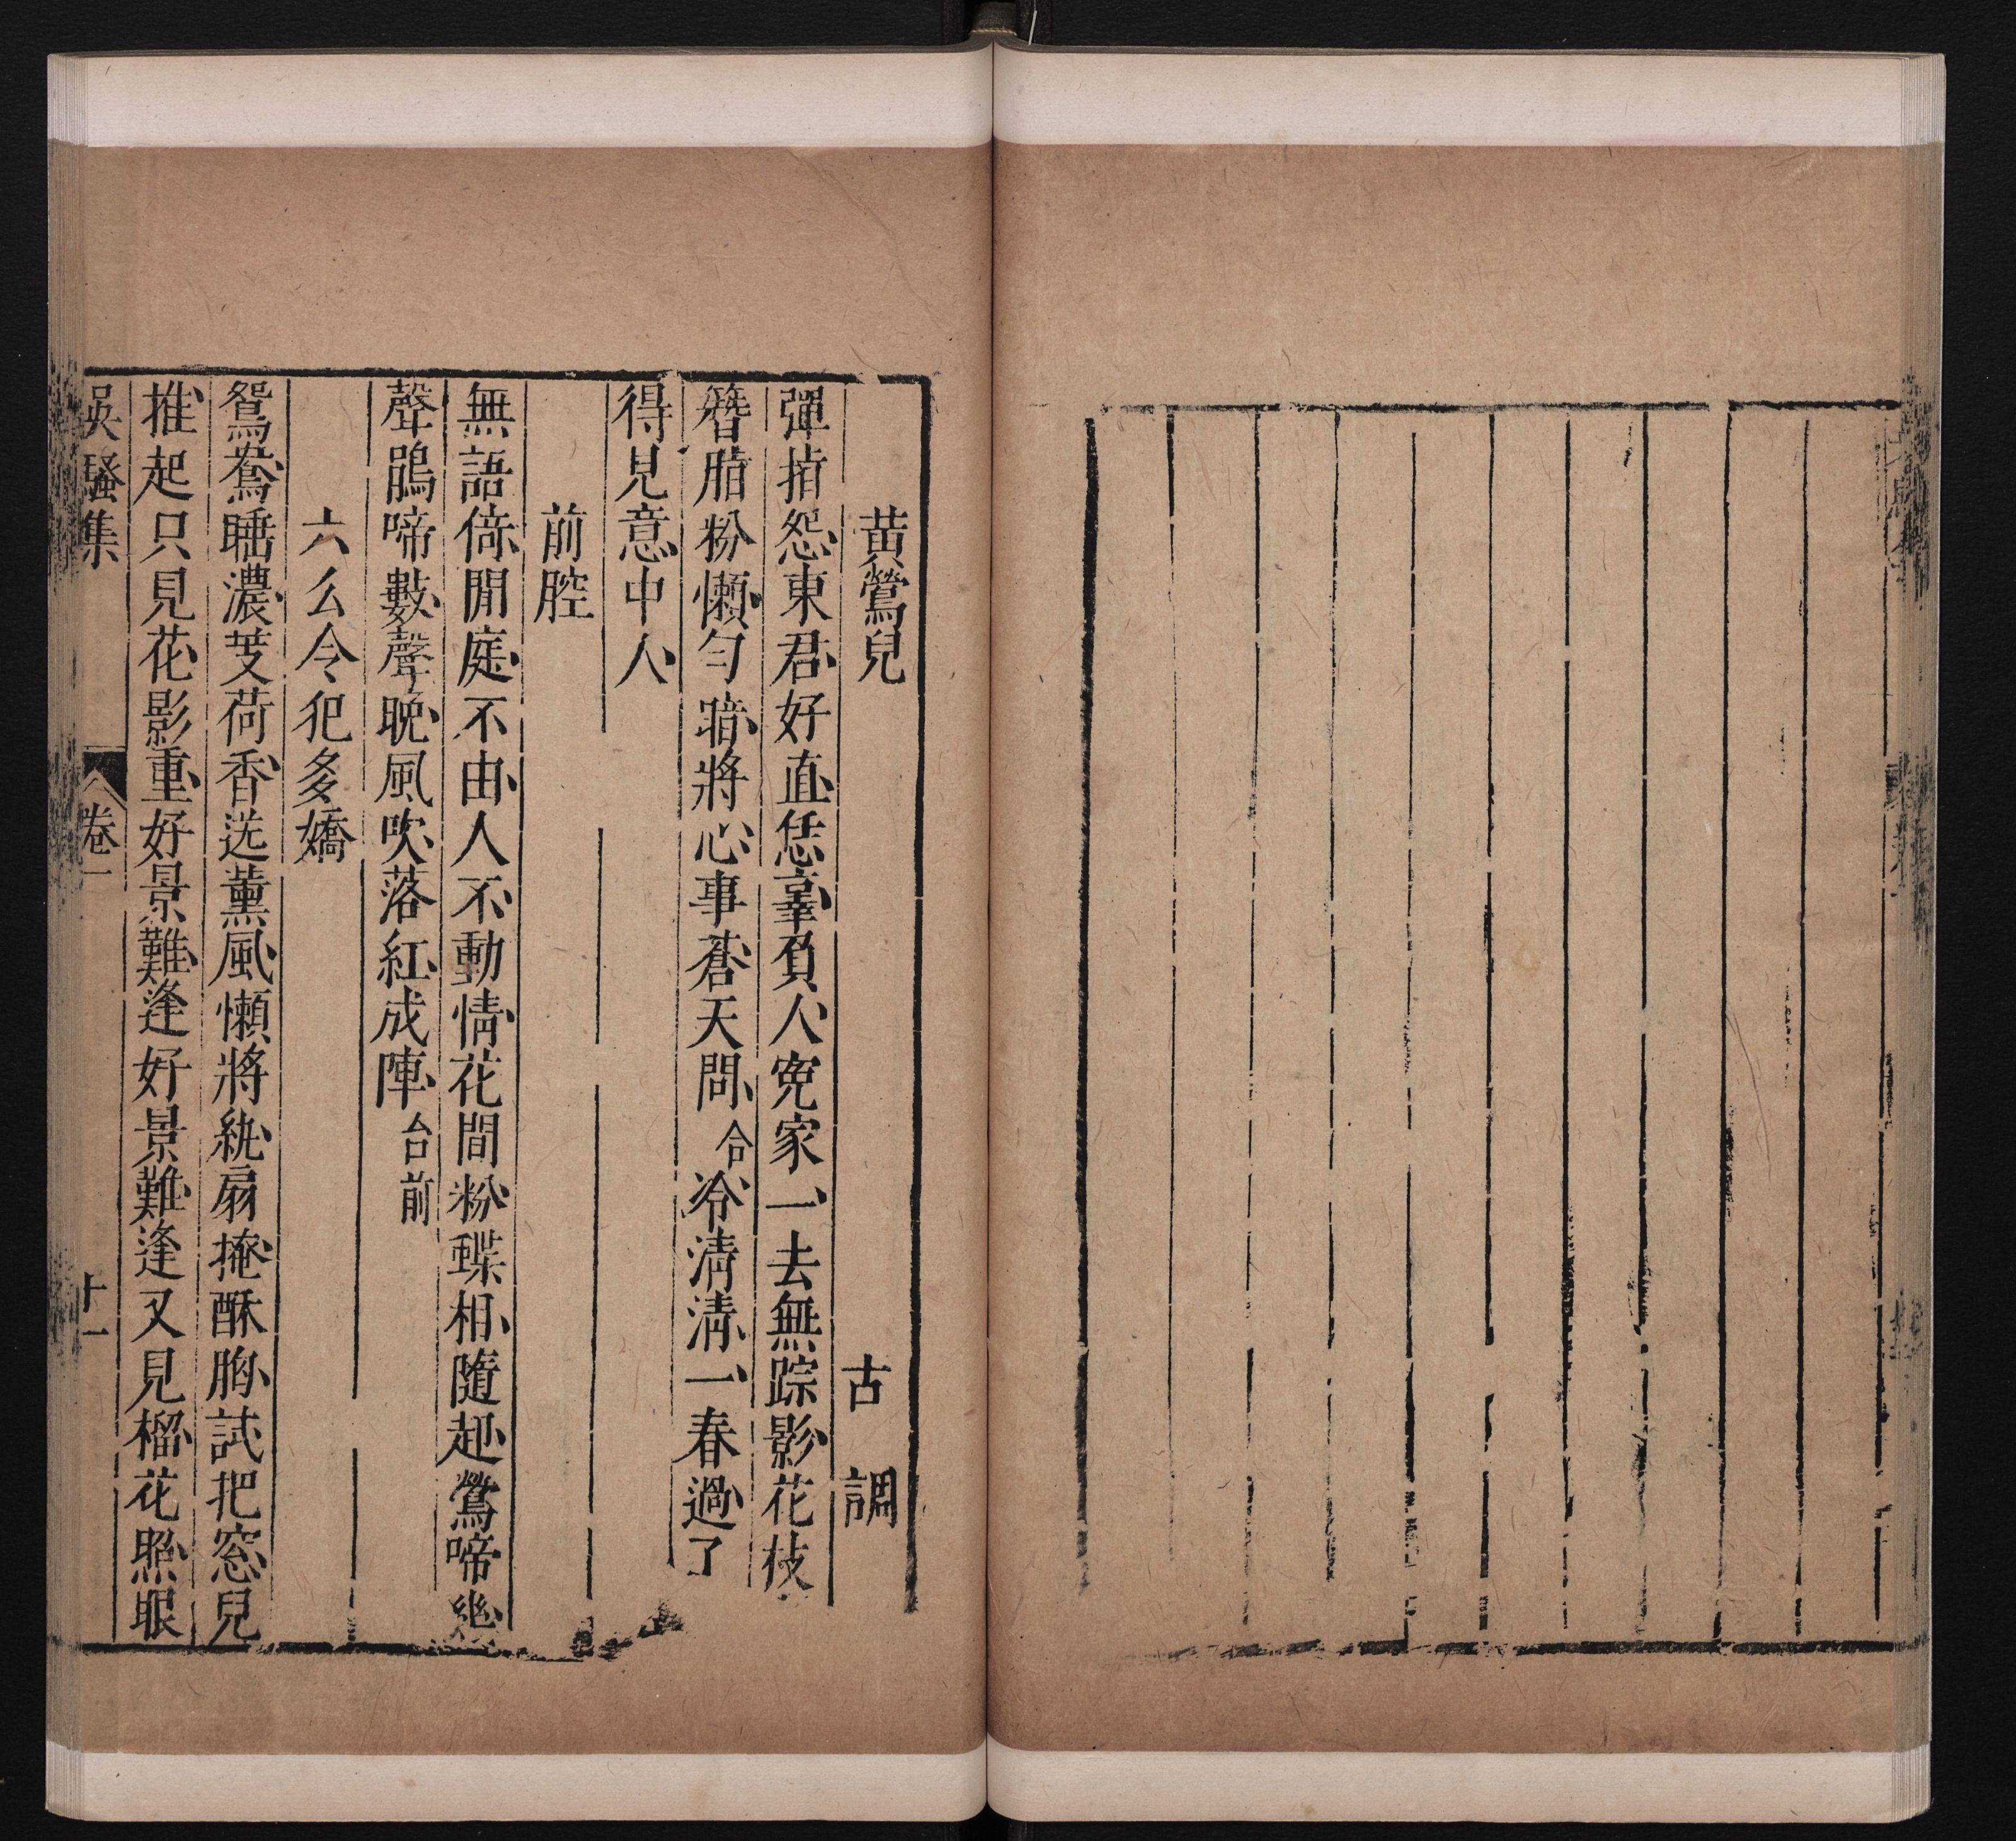 黄鶯兒　古　調
彈指怨東君好直恁辜負人寃家一去無踪影花枝
簪脂粉懶勻暗將心事蒼天問合冷清清一春過了
得見意中人
前腔
無語倚閒庭不由人不動情花間粉蝶相隨趂鶯啼幾
聲鵑啼數聲晚風吹落紅成陣合前
六么令犯多嬌
鴛鴦睡濃芰荷香送薰風懶將紈扇掩酥胸試把窓兒
推起只見花影重好景難逢好景難逢又見榴花照眼
吳騷集　卷一　十一